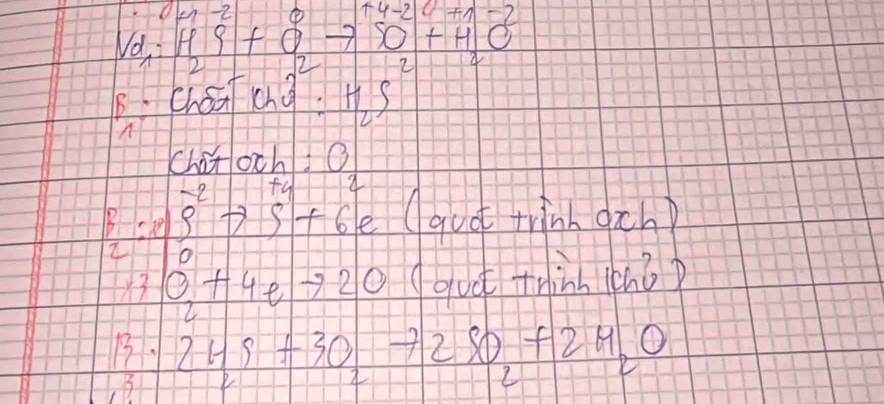 Vd₁: H₂⁺¹S⁻² + O₂⁰ → S⁺⁴O₂⁻² + H₂⁺¹O⁻²
B1: Chất khử: H₂S
chất oxh: O₂
B2: S⁻² → S⁺⁴ + 6e (quá trình oxh)
×3 O₂⁰ + 4e → 2O (quá trình khử)
B3: 2H₂S + 3O₂ → 2SO₂ + 2H₂O